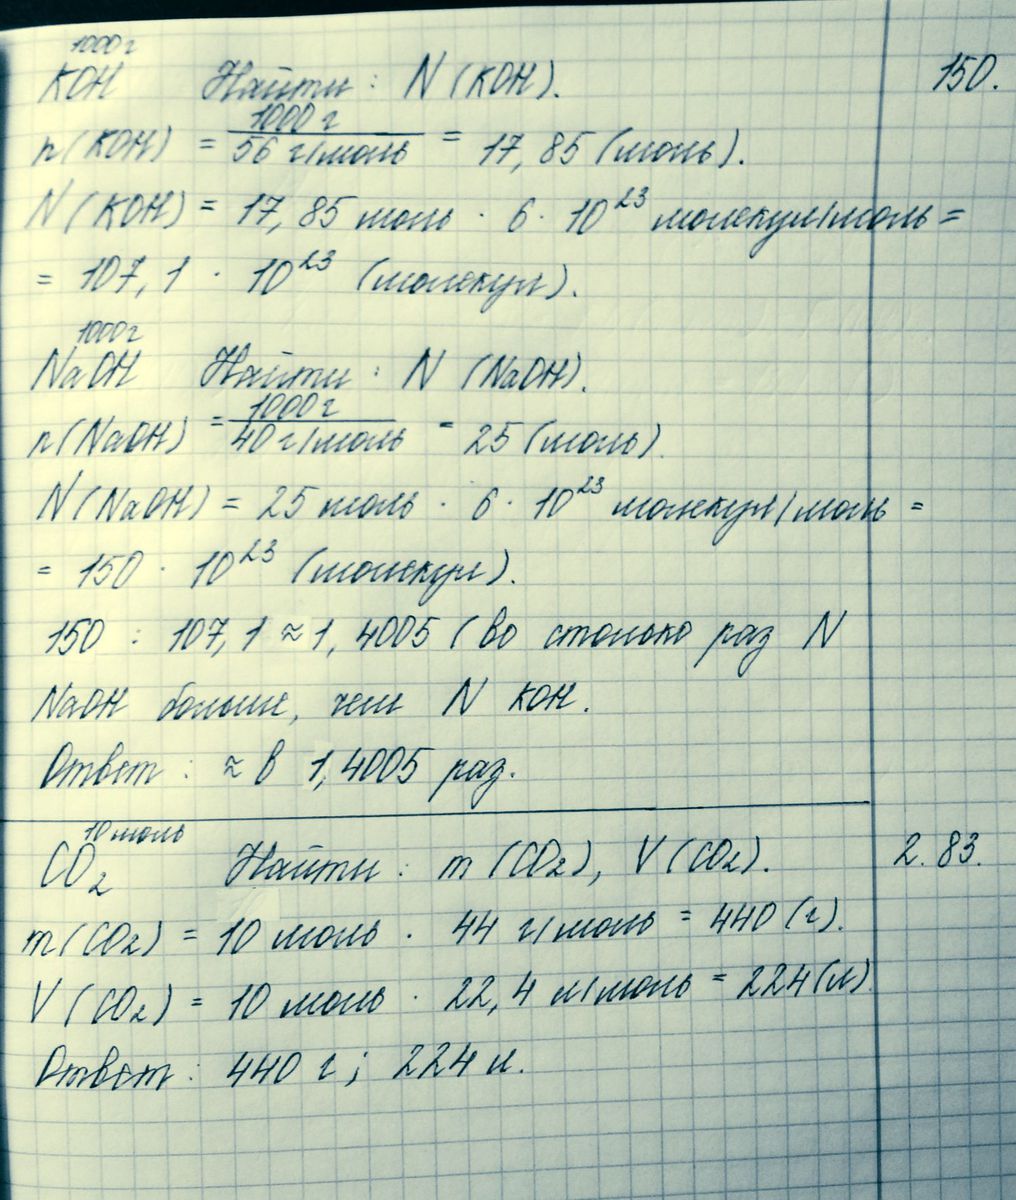 1000 г
KOH Найти: N (KOH). 150.
n(KOH) = 1000 г / 56 г/моль = 17,85 (моль).
N (KOH) = 17,85 моль · 6 · 10²³ молекул/моль =
= 107,1 · 10²³ (молекул).
1000 г
NaOH Найти: N (NaOH).
n(NaOH) = 1000 г / 40 г/моль = 25 (моль).
N (NaOH) = 25 моль · 6 · 10²³ молекул/моль =
= 150 · 10²³ (молекул).
150 : 107,1 ≈ 1,4005 (во столько раз N
NaOH больше, чем N KOH.
Ответ: ≈ в 1,4005 раз.
10 моль
CO₂ Найти: m (CO₂), V (CO₂). 2. 83.
m(CO₂) = 10 моль · 44 г/моль = 440 (г).
V (CO₂) = 10 моль · 22,4 л/моль = 224 (л)
Ответ: 440 г; 224 л.